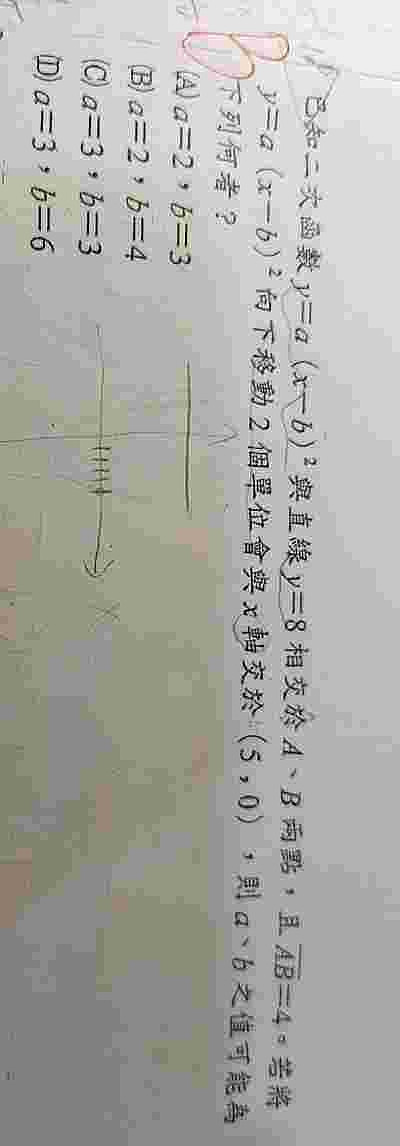 已知二次函數 y=a（x−b）²與直線 y=8 相交於 A、B 兩點，且 \overline{AB}=4。若將
y=a（x−b）²向下移動 2 個單位會與 x 軸交於（5，0），則 a、b 之值可能為
下列何者？
(A) a=2，b=3
(B) a=2，b=4
(C) a=3，b=3
(D) a=3，b=6
x